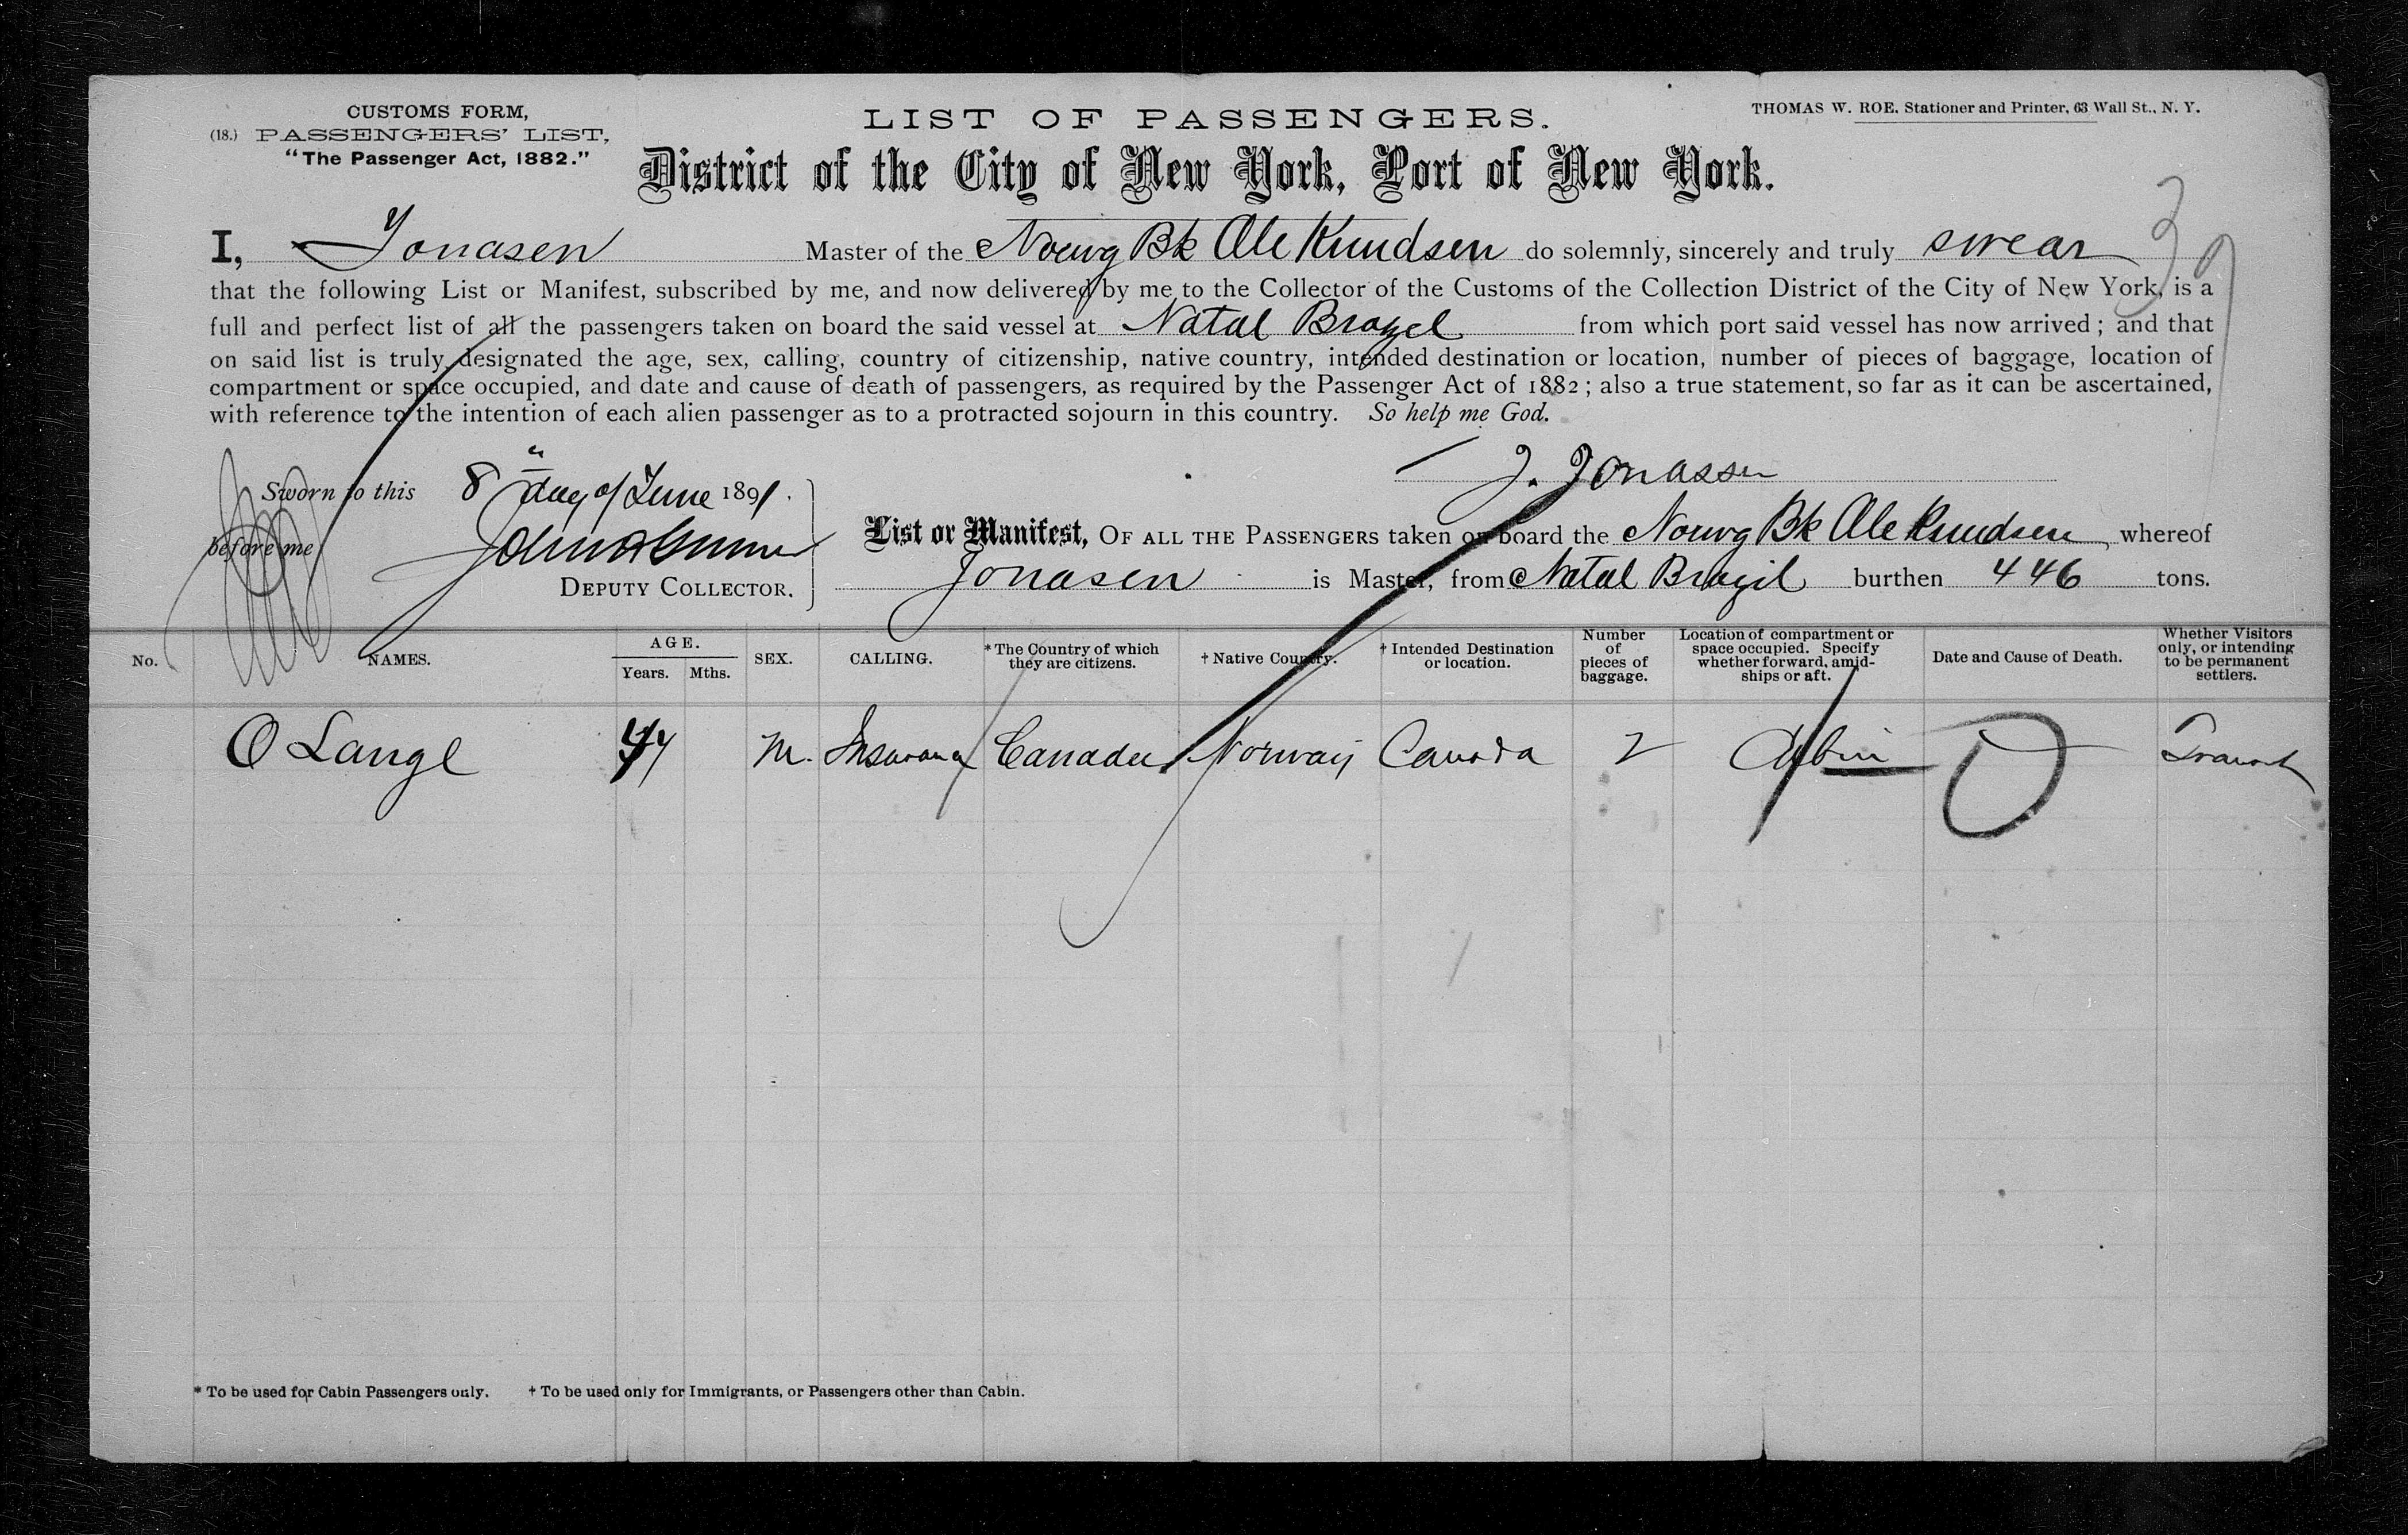 CUSTOMS FORM,
(18.) PASSENGERS' LIST,
"The Passenger Act, 1882."
LIST OF PASSENGERS.
THOMAS W. ROE. Stationer and Printer, 63 Wall St., N. Y.
District of the City of New York, Port of New York.
39
I, Jonasen Master of the Norwg Bk Ole Knudsen do solemnly, sincerely and truly swear
that the following List or Manifest, subscribed by me, and now delivered by me to the Collector of the Customs of the Collection District of the City of New York, is a
full and perfect list of all the passengers taken on board the said vessel at Natal Brazel from which port said vessel has now arrived; and that
on said list is truly designated the age, sex, calling, country of citizenship, native country, intended destination or location, number of pieces of baggage, location of
compartment or space occupied, and date and cause of death of passengers, as required by the Passenger Act of 1882; also a true statement, so far as it can be ascertained,
with reference to the intention of each alien passenger as to a protracted sojourn in this country. So help me God.
J. Jonassen
Sworn to this 8" day of June 1891.
before me
DEPUTY COLLECTOR.
List or Manifest, OF ALL THE PASSENGERS taken on board the Norwg Bk Ole Knudsen, whereof
Jonasen is Master, from Natal Brazil burthen 446 tons.
No. NAMES. AGE. Years. Mths. SEX. CALLING. * The Country of which they are citizens. † Native Country. † Intended Destination or location. Number of pieces of baggage. Location of compartment or space occupied. Specify whether forward, amid-ships or aft. Date and Cause of Death. Whether Visitors only, or intending to be permanent settlers.
O Lange 44 M. Insurance Canada Norway Canada 2 Cabin O Transit
* To be used for Cabin Passengers only. † To be used only for Immigrants, or Passengers other than Cabin.